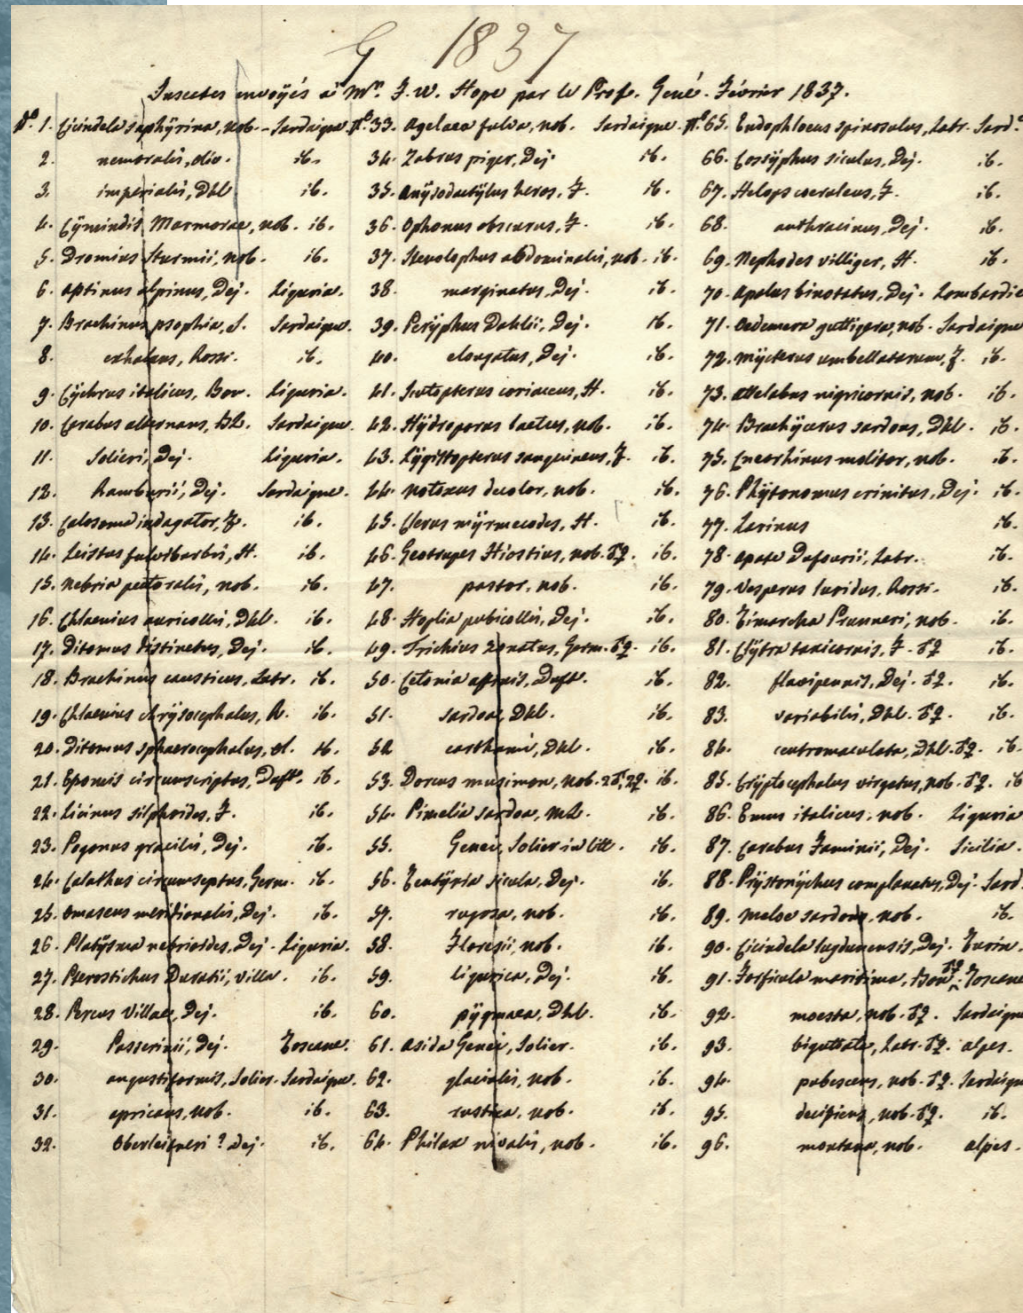 G 1837
Insectes envoyés à Mr. F. W. Hope par le Prof. Gené. Février 1837.
No. 1. Cicindela saphyrina, nob. - Sardaigne
2. nemoralis, oliv. ib.
3. imperialis, Dhl ib.
4. Cymindis Marmorae, nob. ib.
5. Dromius Sturmii, nob. ib.
6. Aptinus alpinus, Dej. Liguria.
7. Brachinus psophia, S. Sardaigne.
8. exhalans, Rossi. ib.
9. Cychrus italicus, Bon. Liguria.
10. Carabus alternans, Sardaigne.
11. Solieri, Dej. Liguria.
12. Ramburii, Dej. Sardaigne.
13. Calosoma indagator, F. ib.
14. Leistus fulvibarbis, H. ib.
15. Nebria pectoralis, nob. ib.
16. Chlaenius auricollis, Dhl. ib.
17. Ditomus distinctus, Dej. ib.
18. Brachinus causticus, Latr. ib.
19. Chlaenius chrysocephalus, R. ib.
20. Ditomus sphaerocephalus, ol. ib.
21. Epomis circumscriptus, Duft. ib.
22. Licinus silphoides, F. ib.
23. Pogonus gracilis, Dej. ib.
24. Calathus circumseptus, Germ. ib.
25. Omaseus meridionalis, Dej. ib.
26. Platysma nebrioides, Dej. Liguria.
27. Pterostichus Duratii, Villa. ib.
28. Percus Villae, Dej. ib.
29. Passerinii, Dej. Toscane.
30. angustiformis, Solier. Sardaigne.
31. apricans, nob. ib.
32. Oberleitneri? Dej. ib.
No. 33. Agelaea fulva, nob. Sardaigne.
34. Zabrus piger, Dej. ib.
35. Anysodactylus heros, F. ib.
36. Ophonus obscurus, F. ib.
37. Stenolophus abdominalis, nob. ib.
38. marginatus, Dej. ib.
39. Peryphus Dahlii, Dej. ib.
40. elongatus, Dej. ib.
41. Scutopterus coriaceus, H. ib.
42. Hydroporus laetus, nob. ib.
43. Lygistopterus sanguineus, F. ib.
44. Notoxus decolor, nob. ib.
45. Clerus myrmecodes, H. ib.
46. Geotrupes Hiostius, nob. ♂♀. ib.
47. pastor, nob. ib.
48. Hoplia pubicollis, Dej. ib.
49. Trichius zonatus, Germ. ♂♀. ib.
50. Cetonia affinis, Duft. ib.
51. sardoa, Dhl. ib.
52. carthami, Dhl. ib.
53. Dorcus musimon, nob. 2♂, 2♀. ib.
54. Pimelia sardoa, ib.
55. Genei, Solier in litt. ib.
56. Tentyria sicula, Dej. ib.
57. rugosa, nob. ib.
58. Floresii, nob. ib.
59. ligurica, Dej. ib.
60. pygmaea, Dhl. ib.
61. Asida Genei, Solier. ib.
62. glacialis, nob. ib.
63. rustica, nob. ib.
64. Philax nivalis, nob. ib.
No. 65. Endophloeus spinosulus, Latr. Sard.e
66. Cossyphus siculus, Dej. ib.
67. Helops coeruleus, F. ib.
68. anthracinus, Dej. ib.
69. Nephodes villiger, H. ib.
70. Apalus binotatus, Dej. Lombardie
71. Oedemera guttigera, nob. Sardaigne
72. Mycterus umbellatarum, F. ib.
73. Attelabus nigricornis, nob. ib.
74. Brachycerus sardous, Dhl. ib.
75. Cneorhinus molitor, nob. ib.
76. Phytonomus crinitus, Dej. ib.
77. Larinus ib.
78. Apate Dufourii, Latr. ib.
79. Vesperus luridus, Rossi. ib.
80. Timarcha Prunneri, nob. ib.
81. Clytra taxicornis, F. ♂♀ ib.
82. flavipennis, Dej. ♂♀. ib.
83. variabilis, Dhl. ♂♀. ib.
84. centromaculata, Dhl. ♂♀. ib.
85. Cryptocephalus virgatus, nob. ♂♀. ib
86. Emus italicus, nob. Liguria
87. Carabus Faminii, Dej. Sicilia.
88. Prystonychus complanatus, Dej. Sard.
89. Meloe sardous, nob. ib.
90. Cicindela lugdunensis, Dej. Turin.
91. Forficula maritima, Bon. ♂♀. Toscane
92. moesta, nob. ♂♀. Sardaigne
93. biguttata, Latr. ♂♀. alpes.
94. pubescens, nob. ♂♀. Sardaigne
95. decipiens, nob. ♂♀. ib.
96. montana, nob. alpes.